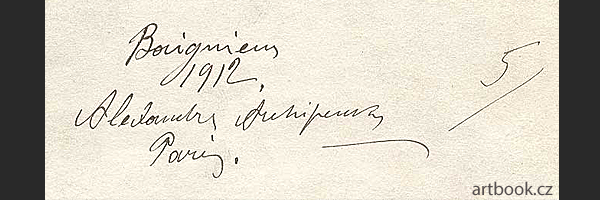 Baigneuse
1912.
Alexandre Archipenko
Paris.
5/
artbook.cz